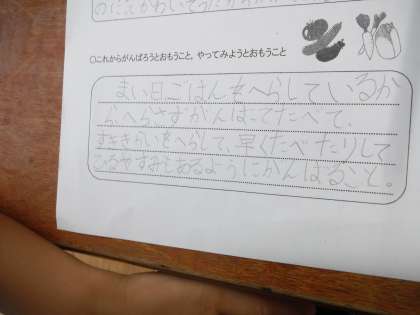 ○これからがんばろうとおもうこと、やってみようとおもうこと
まい日ごはんをへらしているか
ら、へらさずがんばってたべて、
すききらいをへらして、早くたべたりして
ひるやすみもあるようにがんばること。